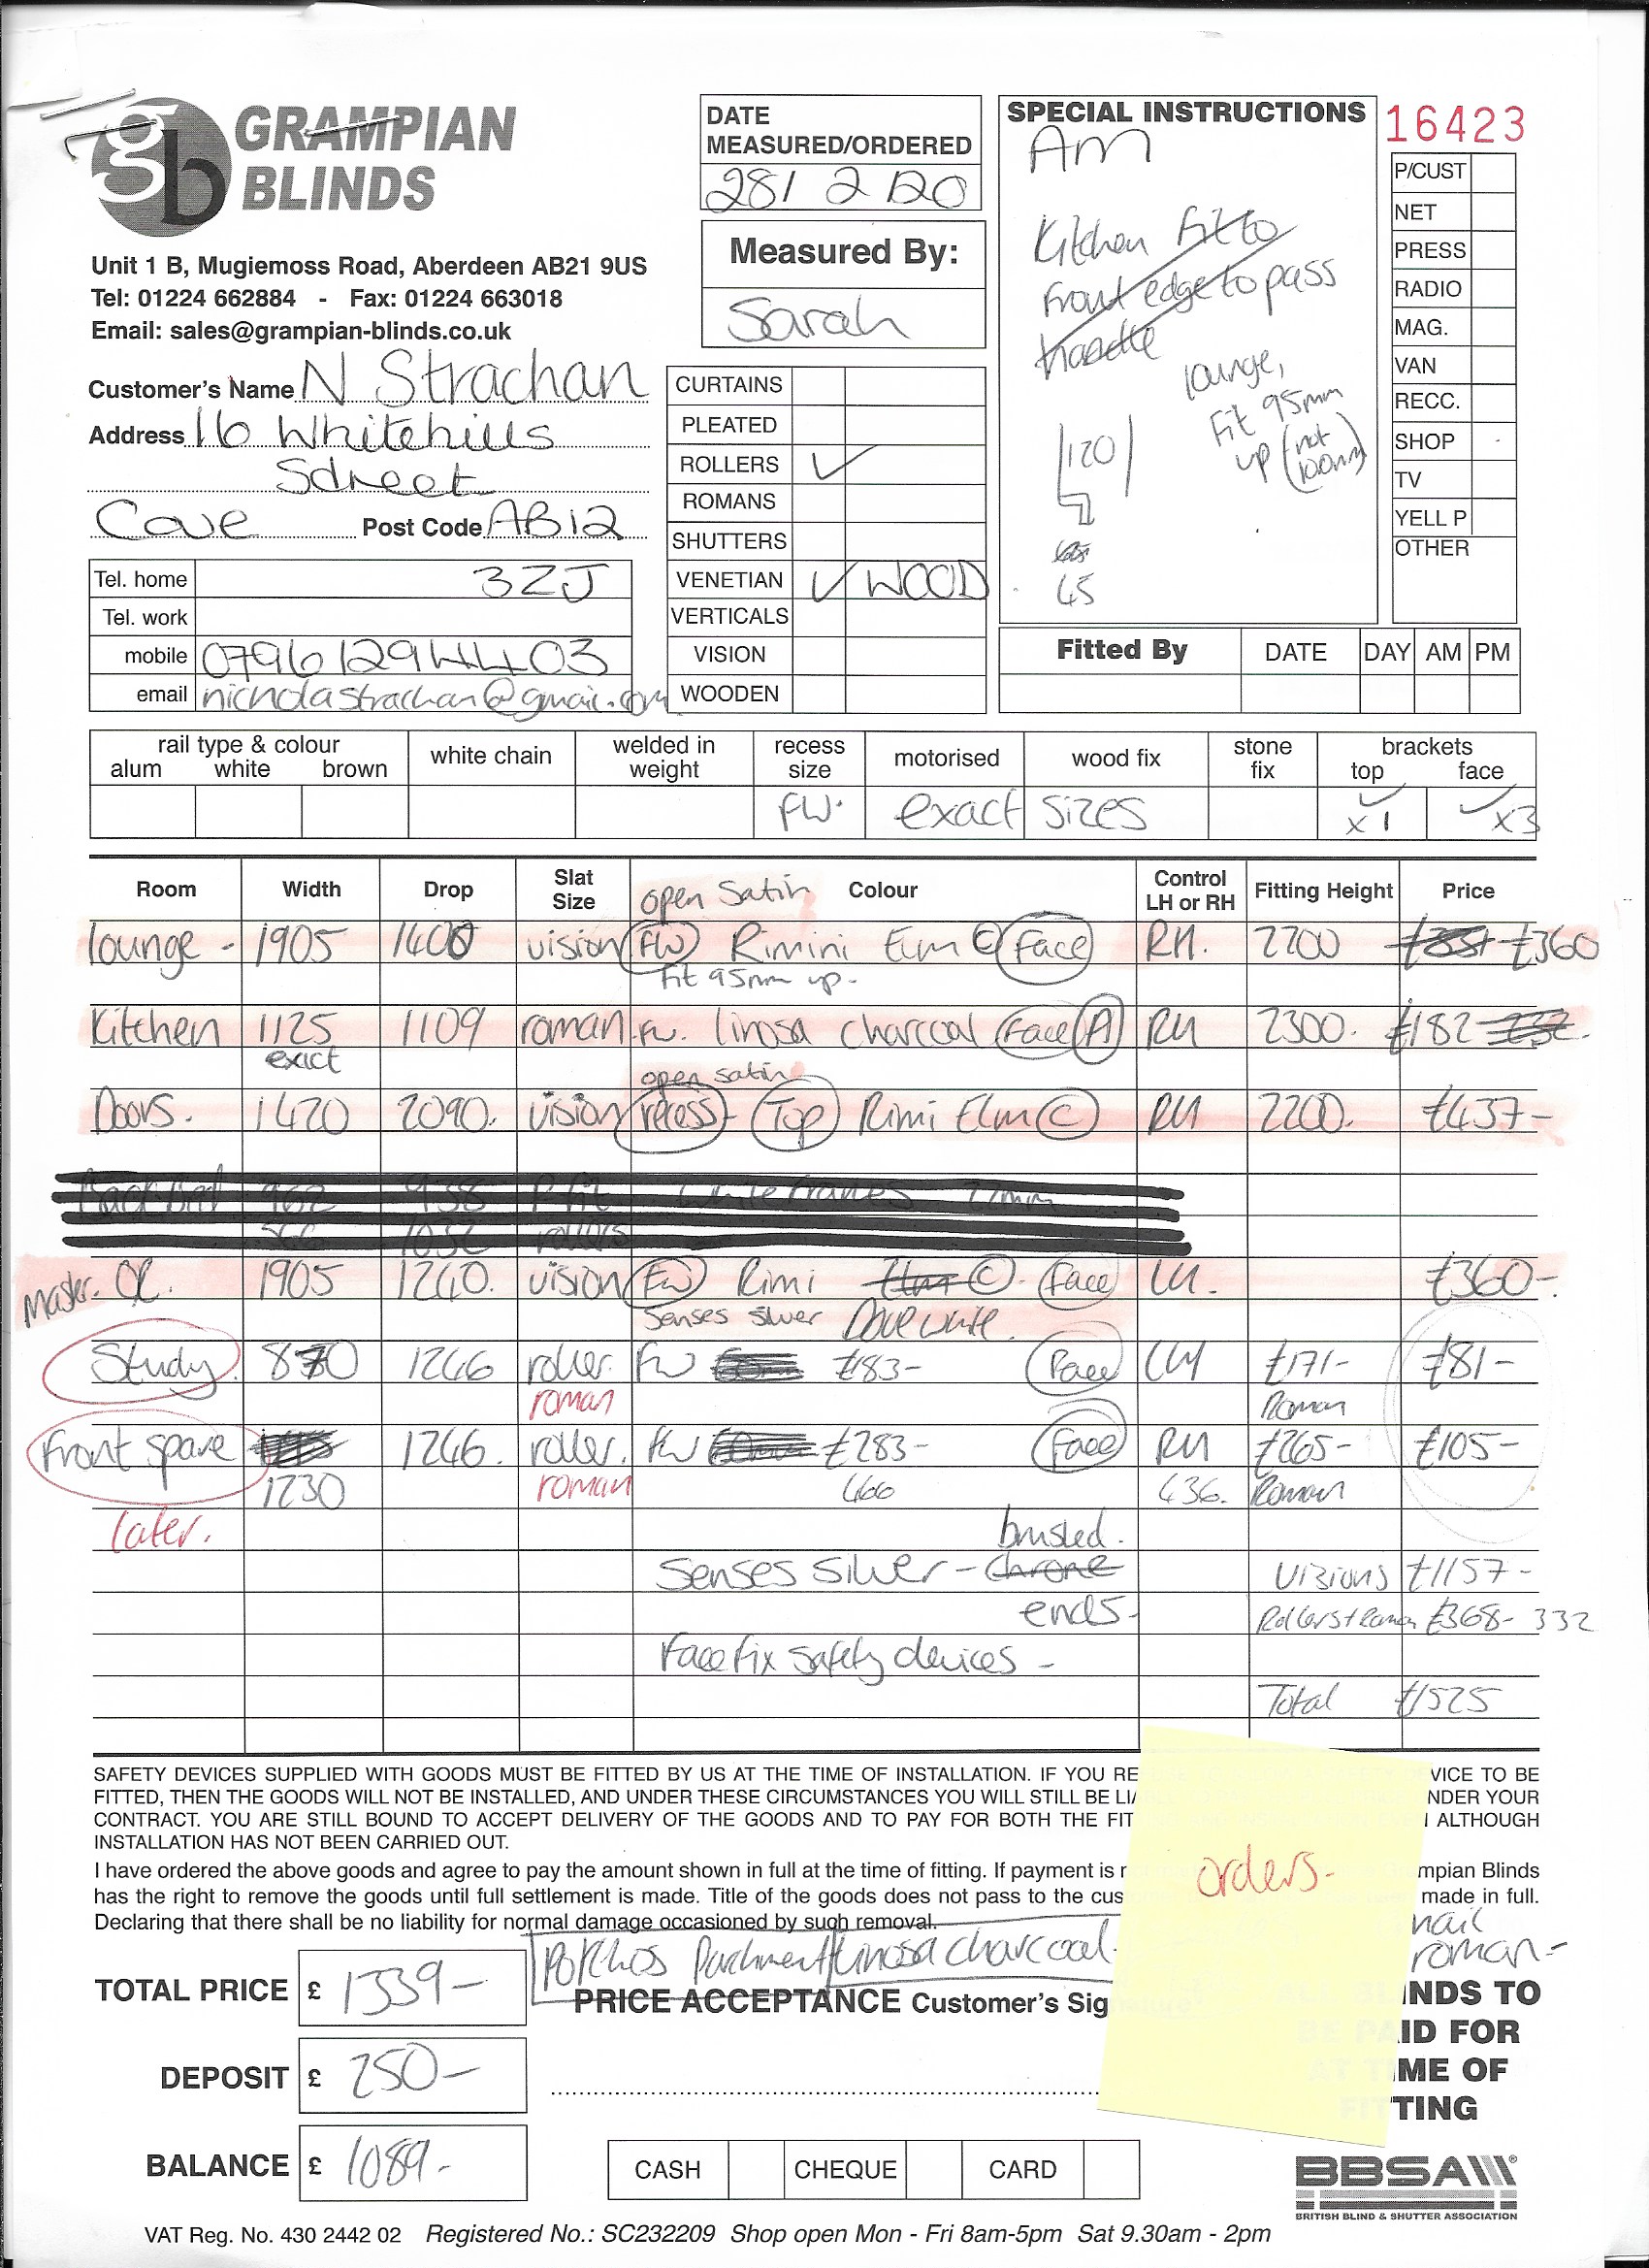 GRAMPIAN
BLINDS
Unit 1 B, Mugiemoss Road, Aberdeen AB21 9US
Tel: 01224 662884 - Fax: 01224 663018
Email: sales@grampian-blinds.co.uk
DATE
MEASURED/ORDERED
28/2/20
Measured By:
Sarah
SPECIAL INSTRUCTIONS
AM
Kitchen fit to
front edge to pass
handle
lounge,
fit 95mm
up (not
100mm)
120
45
16423
P/CUST
NET
PRESS
RADIO
MAG.
VAN
RECC.
SHOP
TV
YELL P
OTHER
Customer's Name N Strachan
Address 16 Whitehills
Street
Cove Post Code AB12
Tel. home 3ZJ
Tel. work
mobile 07961294403
email nicholastrachan@gmail.com
CURTAINS
PLEATED
ROLLERS ✓
ROMANS
SHUTTERS
VENETIAN ✓ WOOD
VERTICALS
VISION
WOODEN
Fitted By DATE DAY AM PM
rail type & colour
alum white brown
white chain
welded in
weight
recess
size
motorised
wood fix
stone
fix
brackets
top face
FW. exact sizes ✓ x1 ✓ x3
Room Width Drop Slat Size Colour Control LH or RH Fitting Height Price
open Satin
lounge - 1905 1400 vision FW Rimini Elm C Face RH. 2200 £360
fit 95mm up -
Kitchen 1125 1109 roman FW. linosa charcoal Face A RH 2300. £182
exact
open satin
Doors. 1420 2090. vision recess - Top Rimi Elm C RH 2200. £437-
Master. 1905 1240. vision FW Rimi Elm C. Face LH. £360-
Senses silver Dove white.
Study 870 1246 roller. FW £183- Face LH £171- £81-
roman Roman
Front spare 1246. roller. FW £283- Face RH £265- £105-
1230 roman 466 436. Roman
later.
brushed.
Senses silver - chrome Visions £1157-
ends- Rollers + Roman £368- 332
Face fix safety devices -
Total £1525
SAFETY DEVICES SUPPLIED WITH GOODS MUST BE FITTED BY US AT THE TIME OF INSTALLATION. IF YOU RE VICE TO BE
FITTED, THEN THE GOODS WILL NOT BE INSTALLED, AND UNDER THESE CIRCUMSTANCES YOU WILL STILL BE LIA NDER YOUR
CONTRACT. YOU ARE STILL BOUND TO ACCEPT DELIVERY OF THE GOODS AND TO PAY FOR BOTH THE FIT ALTHOUGH
INSTALLATION HAS NOT BEEN CARRIED OUT.
I have ordered the above goods and agree to pay the amount shown in full at the time of fitting. If payment is mpian Blinds
has the right to remove the goods until full settlement is made. Title of the goods does not pass to the cus made in full.
Declaring that there shall be no liability for normal damage occasioned by such removal.
orders-
Porthos Parchment/linosa charcoal-
roman-
TOTAL PRICE £ 1339-
PRICE ACCEPTANCE Customer's Sig
NDS TO
ID FOR
ME OF
TING
DEPOSIT £ 250-
BALANCE £ 1089-
CASH CHEQUE CARD
BBSA
BRITISH BLIND & SHUTTER ASSOCIATION
VAT Reg. No. 430 2442 02 Registered No.: SC232209 Shop open Mon - Fri 8am-5pm Sat 9.30am - 2pm